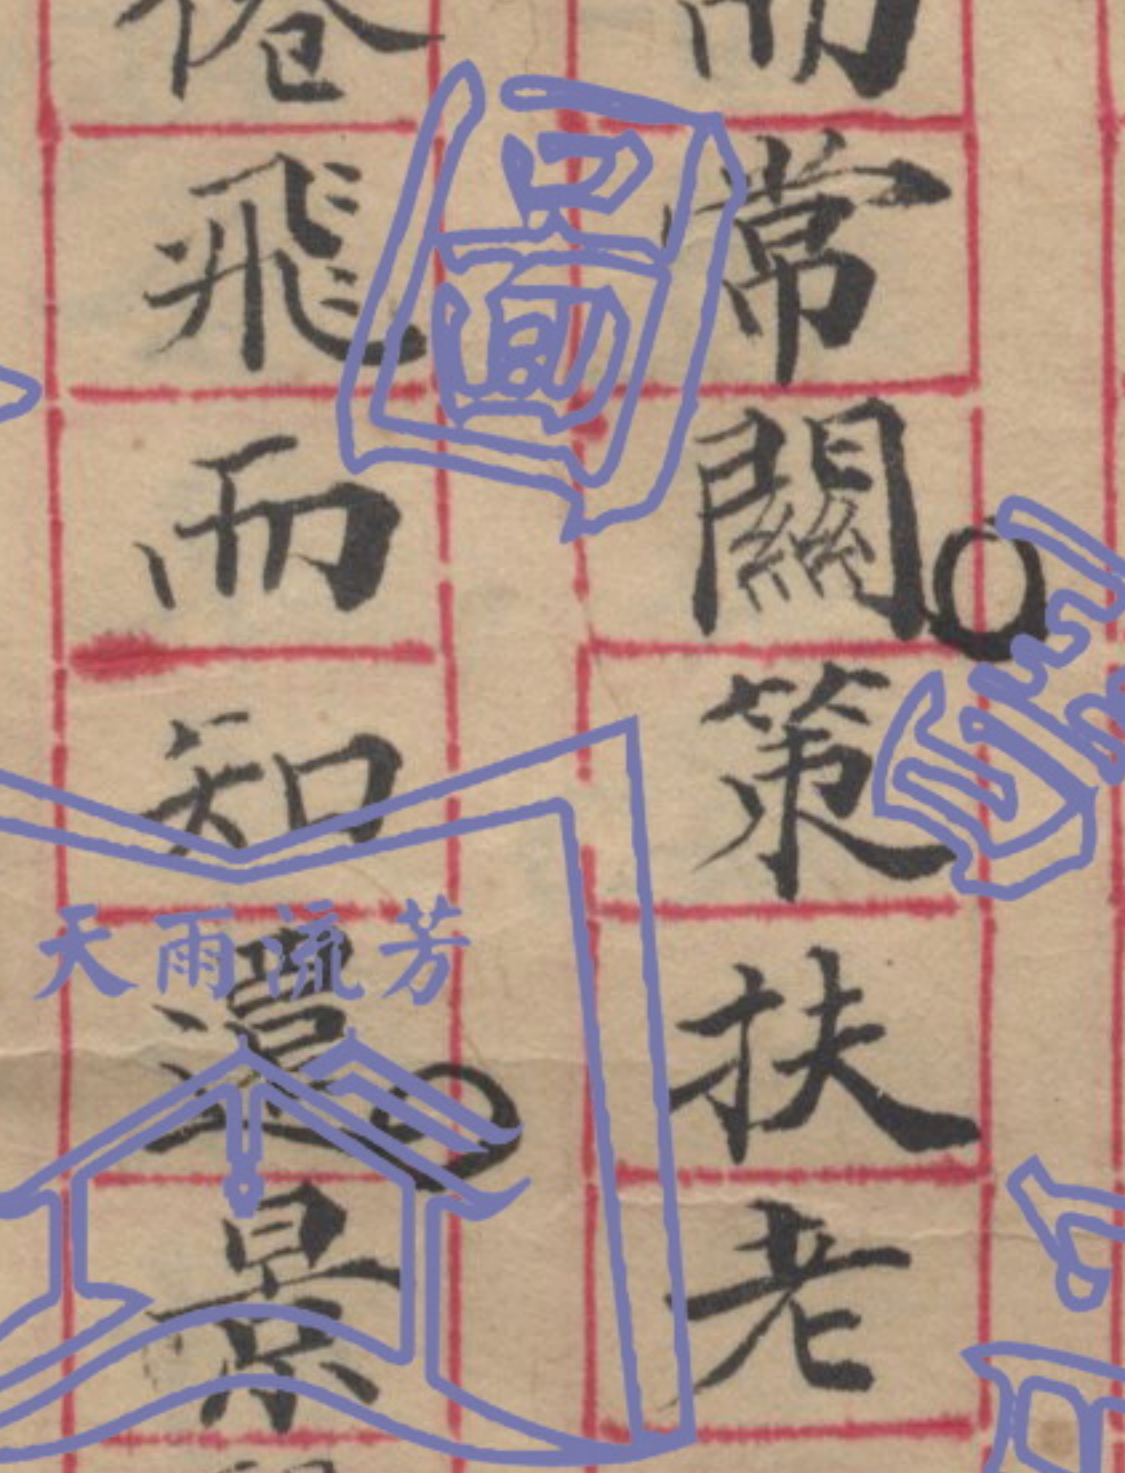 而常關。策扶老
倦飛而知還。景
圖
天雨流芳